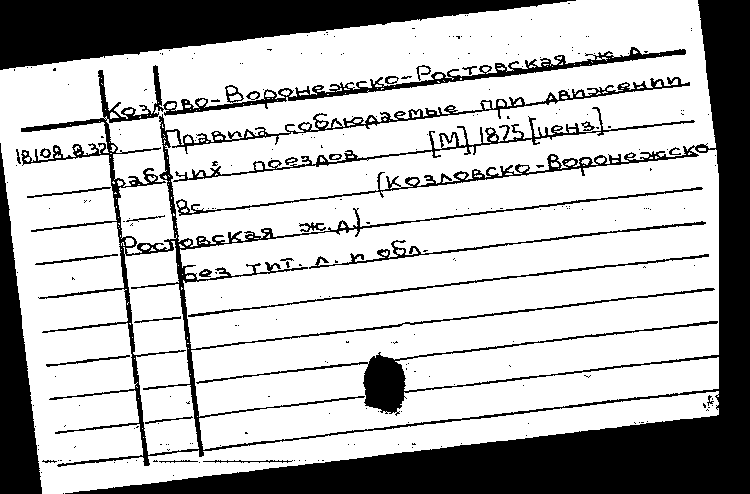 Козлово-Воронежско-Ростовская ж.д.
18.108.8.320. Правила, соблюдаемые при движении
рабочих поездов [М], 1875 [ценз.].
8с. (Козловско-Воронежско-
Ростовская ж.д).
Без тит. л. и обл.